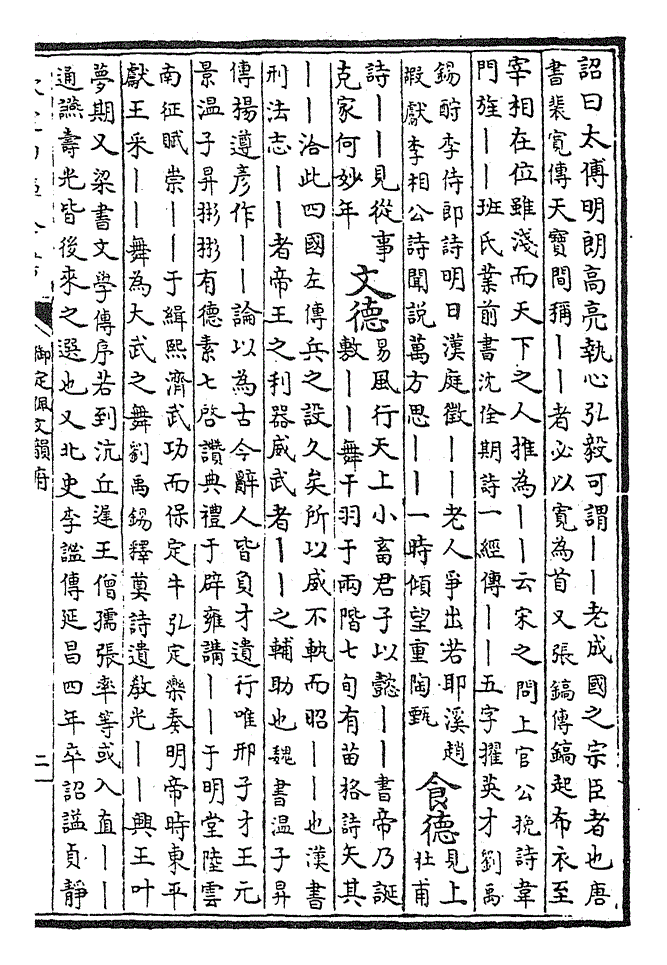 詔曰太傅明朗高亮執心弘毅可謂——老成國之宗臣者也唐
書裴寬傳天寶間稱——者必以寬為首又張鎬傳鎬起布衣至
宰相在位雖淺而天下之人推為——云宋之問上官公挽詩韋
門旌——班氏業前書沈佺期詩一經傳——五字擢英才劉禹
錫酧李侍郎詩明日漢庭徵——老人爭出若耶溪趙
嘏獻李相公詩聞説萬方思——一時傾望重陶甄
食德
見上
杜甫
詩——見從事
克家何妙年
文德
易風行天上小畜君子以懿——書帝乃誕
敷——舞干羽于兩階七旬有苗格詩矢其
——洽此四國左傳兵之設久矣所以威不軌而昭——也漢書
刑法志——者帝王之利器威武者——之輔助也魏書温子昇
傳揚遵彦作——論以為古今辭人皆負才遺行唯邢子才王元
景温子昇彬彬有德素七啓讚典禮于辟雍講——于明堂陸雲
南征賦崇——于緝熙濟武功而保定牛弘定樂奏明帝時東平
獻王采——舞為大武之舞劉禹錫釋奠詩遺教光——興王叶
夢期又梁書文學傳序若到沆丘遲王僧孺張率等或入直——
通讌壽光皆後來之選也又北史李謐傳延昌四年卒詔謚貞靜
御定佩文韻府
二